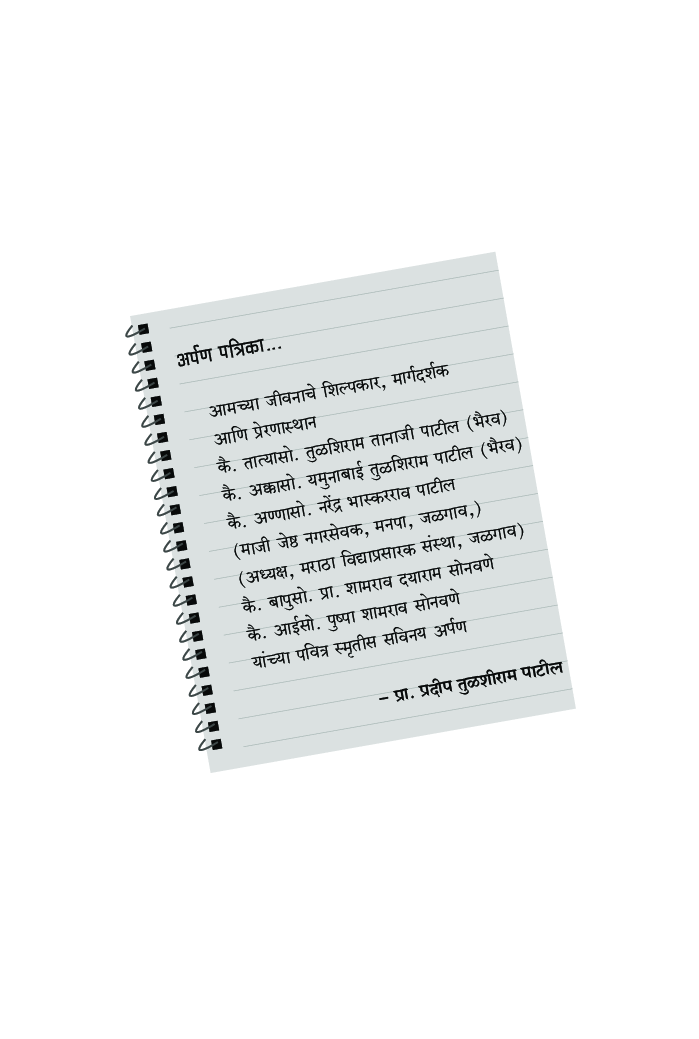 अर्पण पत्रिका...
आमच्या जीवनाचे शिल्पकार, मार्गदर्शक
आणि प्रेरणास्थान
कै. तात्यासो. तुळशिराम तानाजी पाटील (भैरव)
कै. अक्कासो. यमुनाबाई तुळशिराम पाटील (भैरव)
कै. अण्णासो. नरेंद्र भास्करराव पाटील
(माजी जेष्ठ नगरसेवक, मनपा, जळगाव,)
(अध्यक्ष, मराठा विद्याप्रसारक संस्था, जळगाव)
कै. बापुसो. प्रा. शामराव दयाराम सोनवणे
कै. आईसो. पुष्पा शामराव सोनवणे
यांच्या पवित्र स्मृतीस सविनय अर्पण
– प्रा. प्रदीप तुळशीराम पाटील